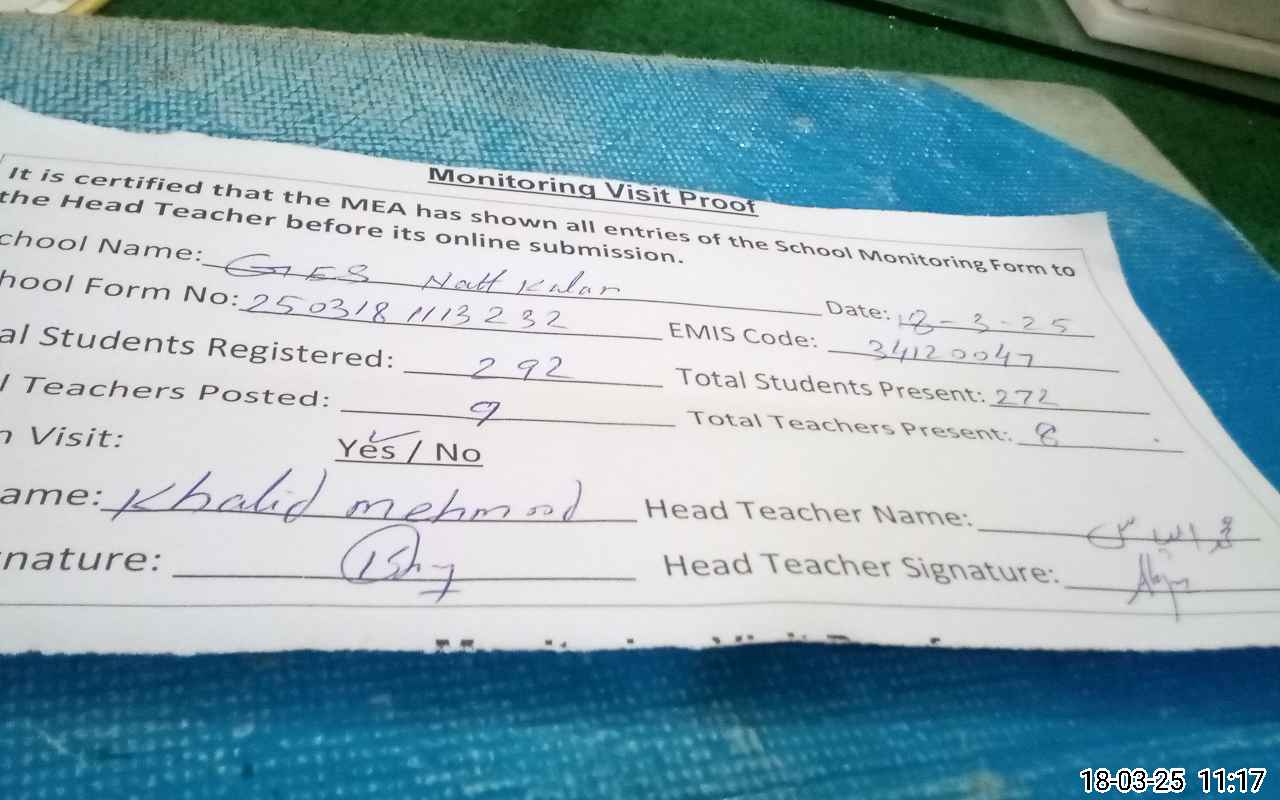 Monitoring Visit Proof
It is certified that the MEA has shown all entries of the School Monitoring Form to
the Head Teacher before its online submission.
chool Name: GES Natt Kalan Date: 18-3-25
hool Form No: 250318 1113232 EMIS Code: 34120047
al Students Registered: 292 Total Students Present: 272
l Teachers Posted: 9 Total Teachers Present: 8
n Visit: Yes / No
ame: Khalid mehmood Head Teacher Name:
nature: Head Teacher Signature:
18-03-25 11:17